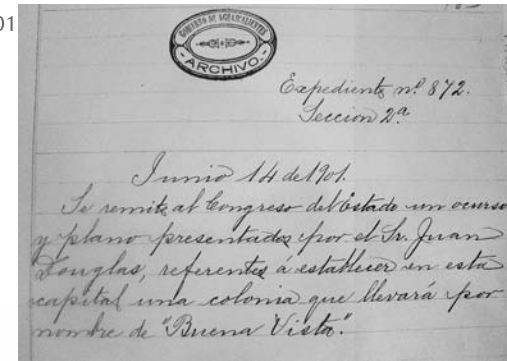 01
GOBIERNO DE AGUASCALIENTES
ARCHIVO.
Expediente nº 872.
Seccion 2ª
Junio 14 de 1901.
Se remite al Congreso del Estado un ocurso
y plano presentados por el Sr. Juan
Douglas, referentes á establecer en esta
capital una colonia que llevará por
nombre de "Buena Vista".